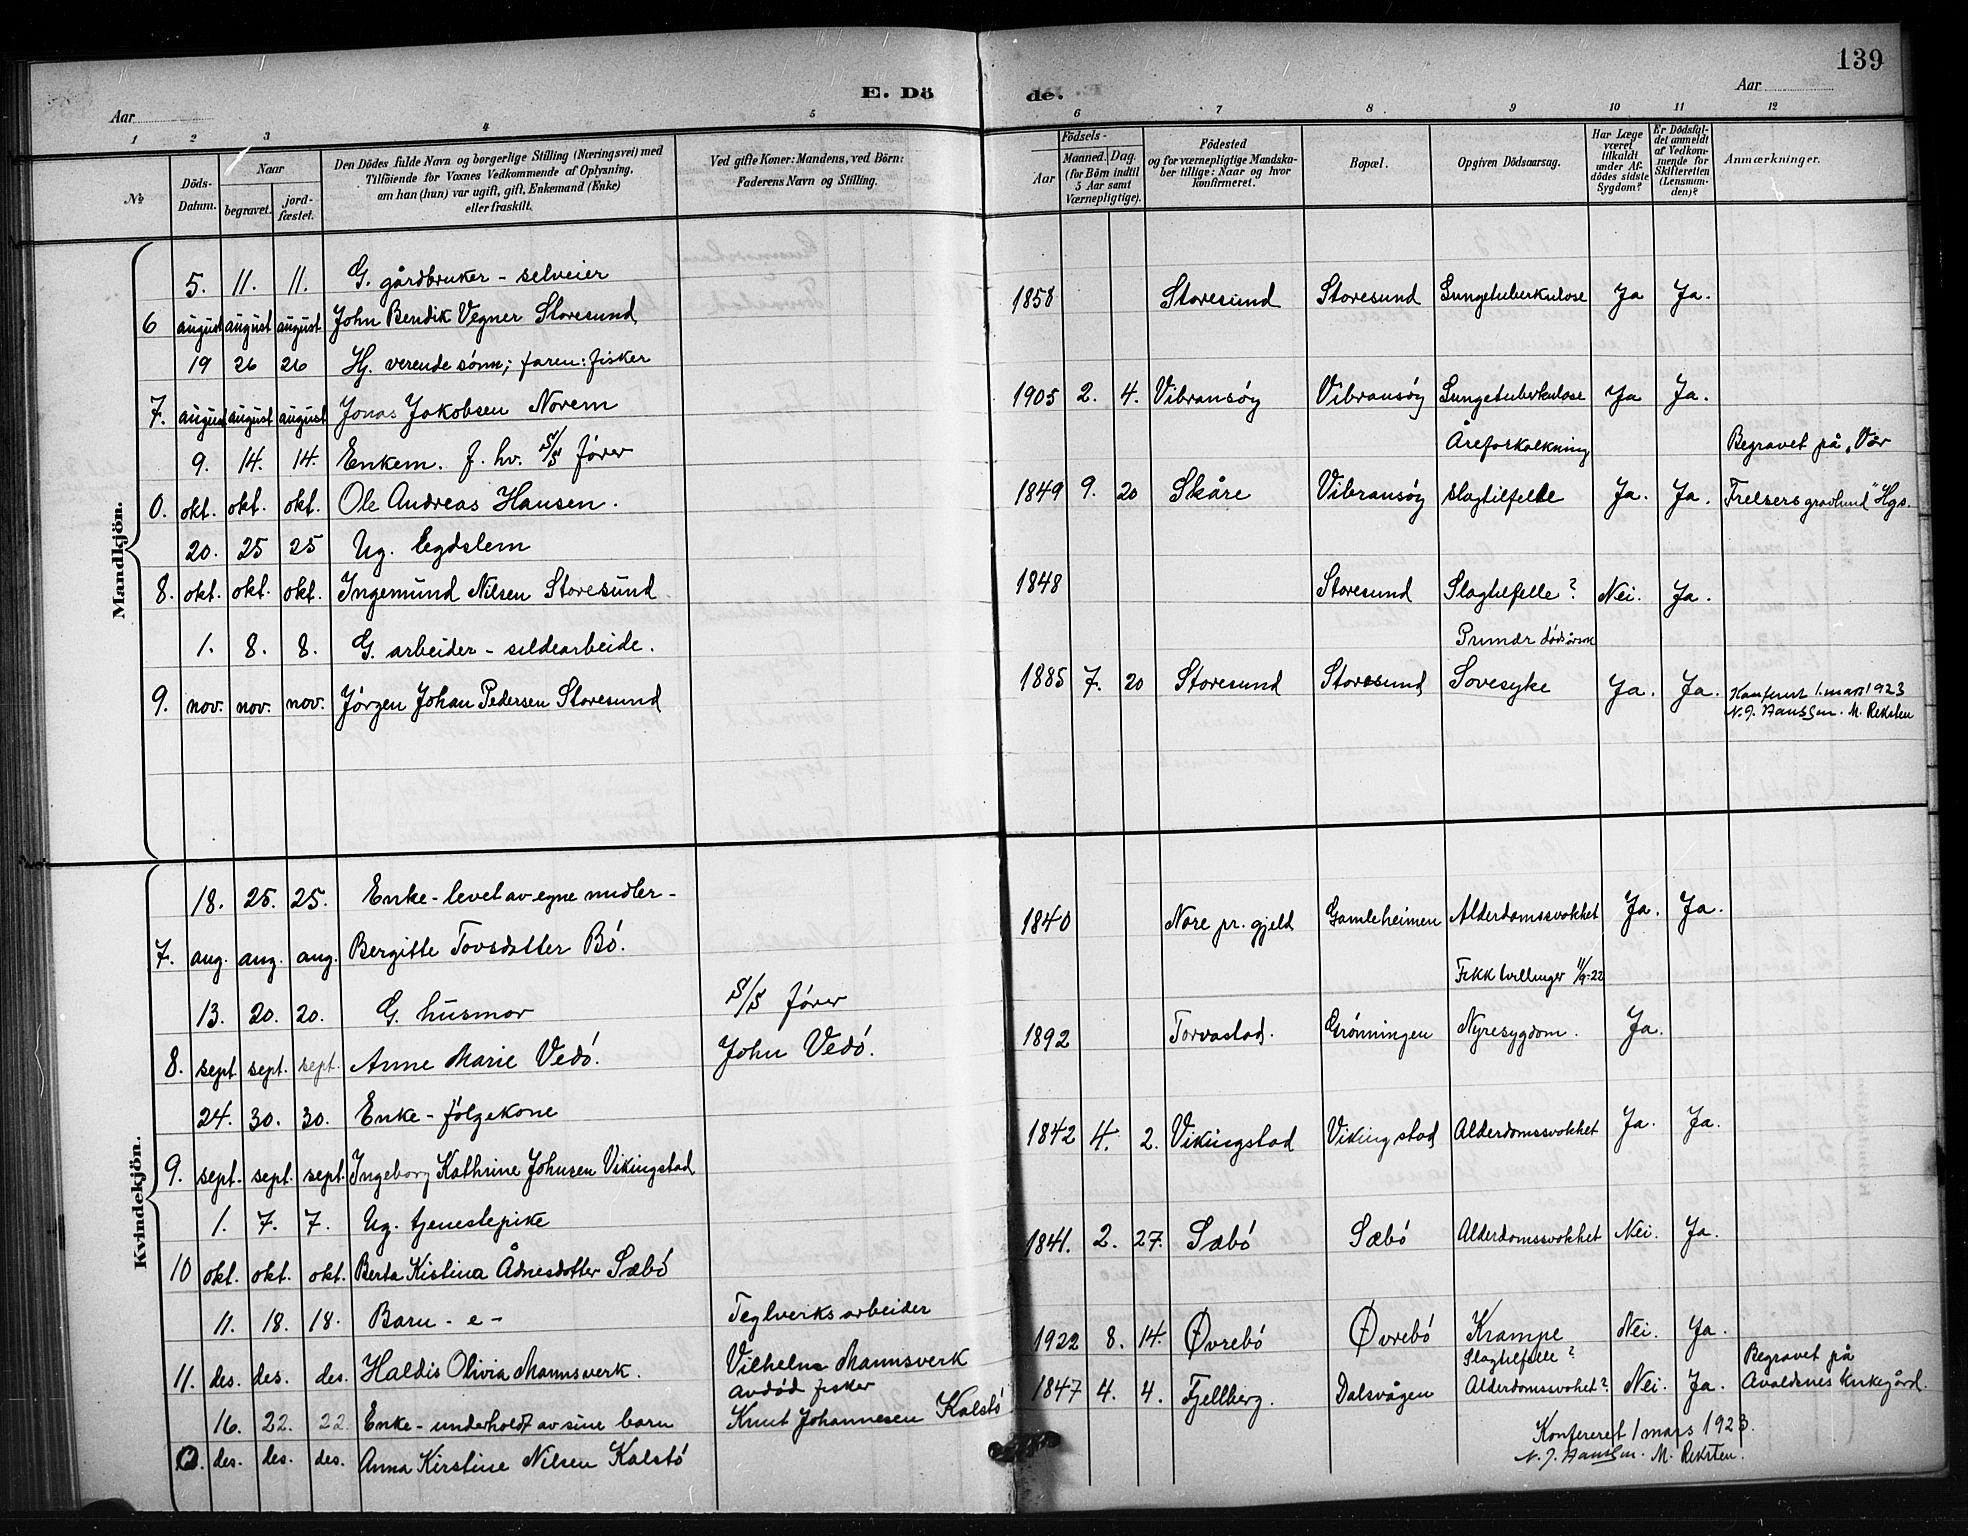 139
E. Dö de.
Aar
Aar
1 2 3 4 5 6 7 8 9 10 11 12
№
Döds-
Datum.
Naar
begravet.
jord-
fæstet.
Den Dödes fulde Navn og borgerlige Stilling (Næringsvei) med
Tilföiende for Voxnes Vedkommende af Oplysning,
om han (hun) var ugift, gift, Enkemand (Enke)
eller fraskilt.
Ved gifte Koner: Mandens, ved Börn:
Faderens Navn og Stilling.
Födsels-
Aar
Maaned. Dag.
(for Börn indtil
5 Aar samt
Værnepligtige).
Födested
og for værnepligtige Mandska-
ber tillige: Naar og hvor
konfirmeret.
Bopæl.
Opgiven Dödsaarsag.
Har Læge
været
tilkaldt
under Af-
dödes sidste
Sygdom?
Er Dödsfal-
det anmeldt
af Vedkom-
mende for
Skifteretten
(Lensman-
den)?
Anmærkninger.
Mandkjön.
5. 11. 11. G. gårdbruker - selveier
6 august august august John Bendik Vegner Storesund
1858 Storesund Storesund Lungetuberkulose Ja Ja.
19 26 26 Hj. verende sönn; faren: fisker
7. august august august Jonas Jakobsen Norem
1905 2. 4. Vibransöy Vibransöy Lungetuberkulose Ja Ja.
9. 14. 14. Enkem. f. hv. S/S förer
Åreforkalkning
Begravet på „Vår
0. okt. okt. okt. Ole Andreas Hansen.
1849 9. 20 Skåre Vibransöy slagtilfelle Ja. Ja. Frelsers gravlund" Hgs.
20. 25 25 Ug. legdslem
8. okt. okt. okt. Ingemund Nilsen Storesund
1848 Storesund Slagtilfelle? Nei. Ja.
1. 8. 8. G. arbeider - sildearbeide.
Primær dödsårsak
9. nov. nov. nov. Jørgen Johan Pedersen Storesund
1885 7. 20 Storesund Storesund Sovesyke Ja. Ja.
Konferert 1. mars 1923
N. J. Hanssen. M. Reksten
Kvindekjön.
18. 25. 25. Enke - levet av egne midler -
7. aug. aug. aug. Bergitte Tovsdatter Bö.
1840 Nore pr. gjeld Gamleheimen Alderdomssvakhet Ja. Ja.
13. 20. 20. G. husmor S/S förer
Fikk tvillinger 11/9-22
8. sept. sept. sept. Anne Marie Vedö. John Vedö.
1892 Torvastad. Grönningen Nyresygdom. Ja.
24. 30. 30. Enke - fölgekone
9. sept. sept. sept. Ingeborg Kathrine Johnsen Vikingstad
1842 4. 2. Vikingstad Vikingstad Alderdomssvakhet Ja. Ja.
1. 7. 7. Ug. tjenestepike
10 okt. okt. okt. Berta Kistina Ådnesdotter Sæbö
1841. 2. 27. Sæbö Sæbö Alderdomssvakhet Nei. Ja.
11. 18. 18. Barn - e - Teglverksarbeider
11. des. des. des. Haldis Olivia Mannsverk. Vilhelm Mannsverk
1922 8. 14. Øvrebö Øvrebö Krampe Nei. Ja.
avdød fisker
Slagtilfelle?
Begravet på
16. 22. 22. Enke - underholdt av sine barn Knut Johannesen Kalstö
1847 4. 4. Fjellberg. Dalsvågen Alderdomssvakhet? Nei. Ja. Avaldsnes kirkegård.
des. des. des. Anna Kirstine Nilsen Kalstö
Konfereret 1 mars 1923.
N. J. Hanssen. M. Reksten.